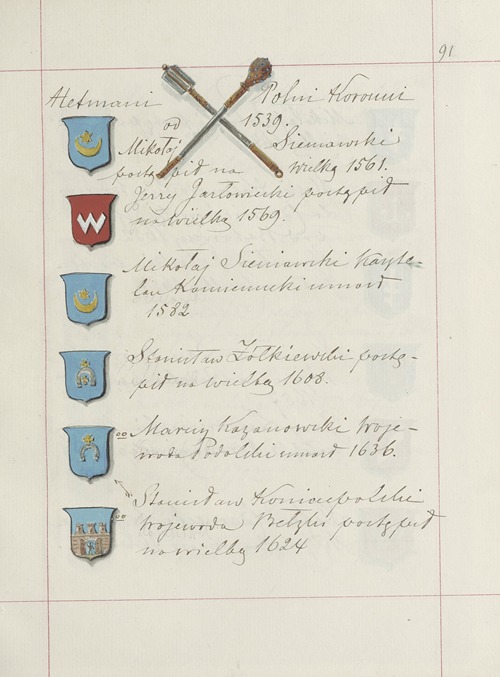 91
Hetmani Polni Koronni
od 1539.
Mikołaj Sieniawski
postąpił na wielką 1561.
Jerzy Jazłowiecki postąpił
na wielką 1569.
Mikołaj Sieniawski Kaszte-
lan Kamieniecki umarł
1582
Stanisław Żółkiewski postą-
pił na wielką 1608.
Marcin Kazanowski Woje-
woda Podolski umarł 1636.
Stanisław Koniecpolski
Wojewoda Bełzki postąpił
na wielką 1624